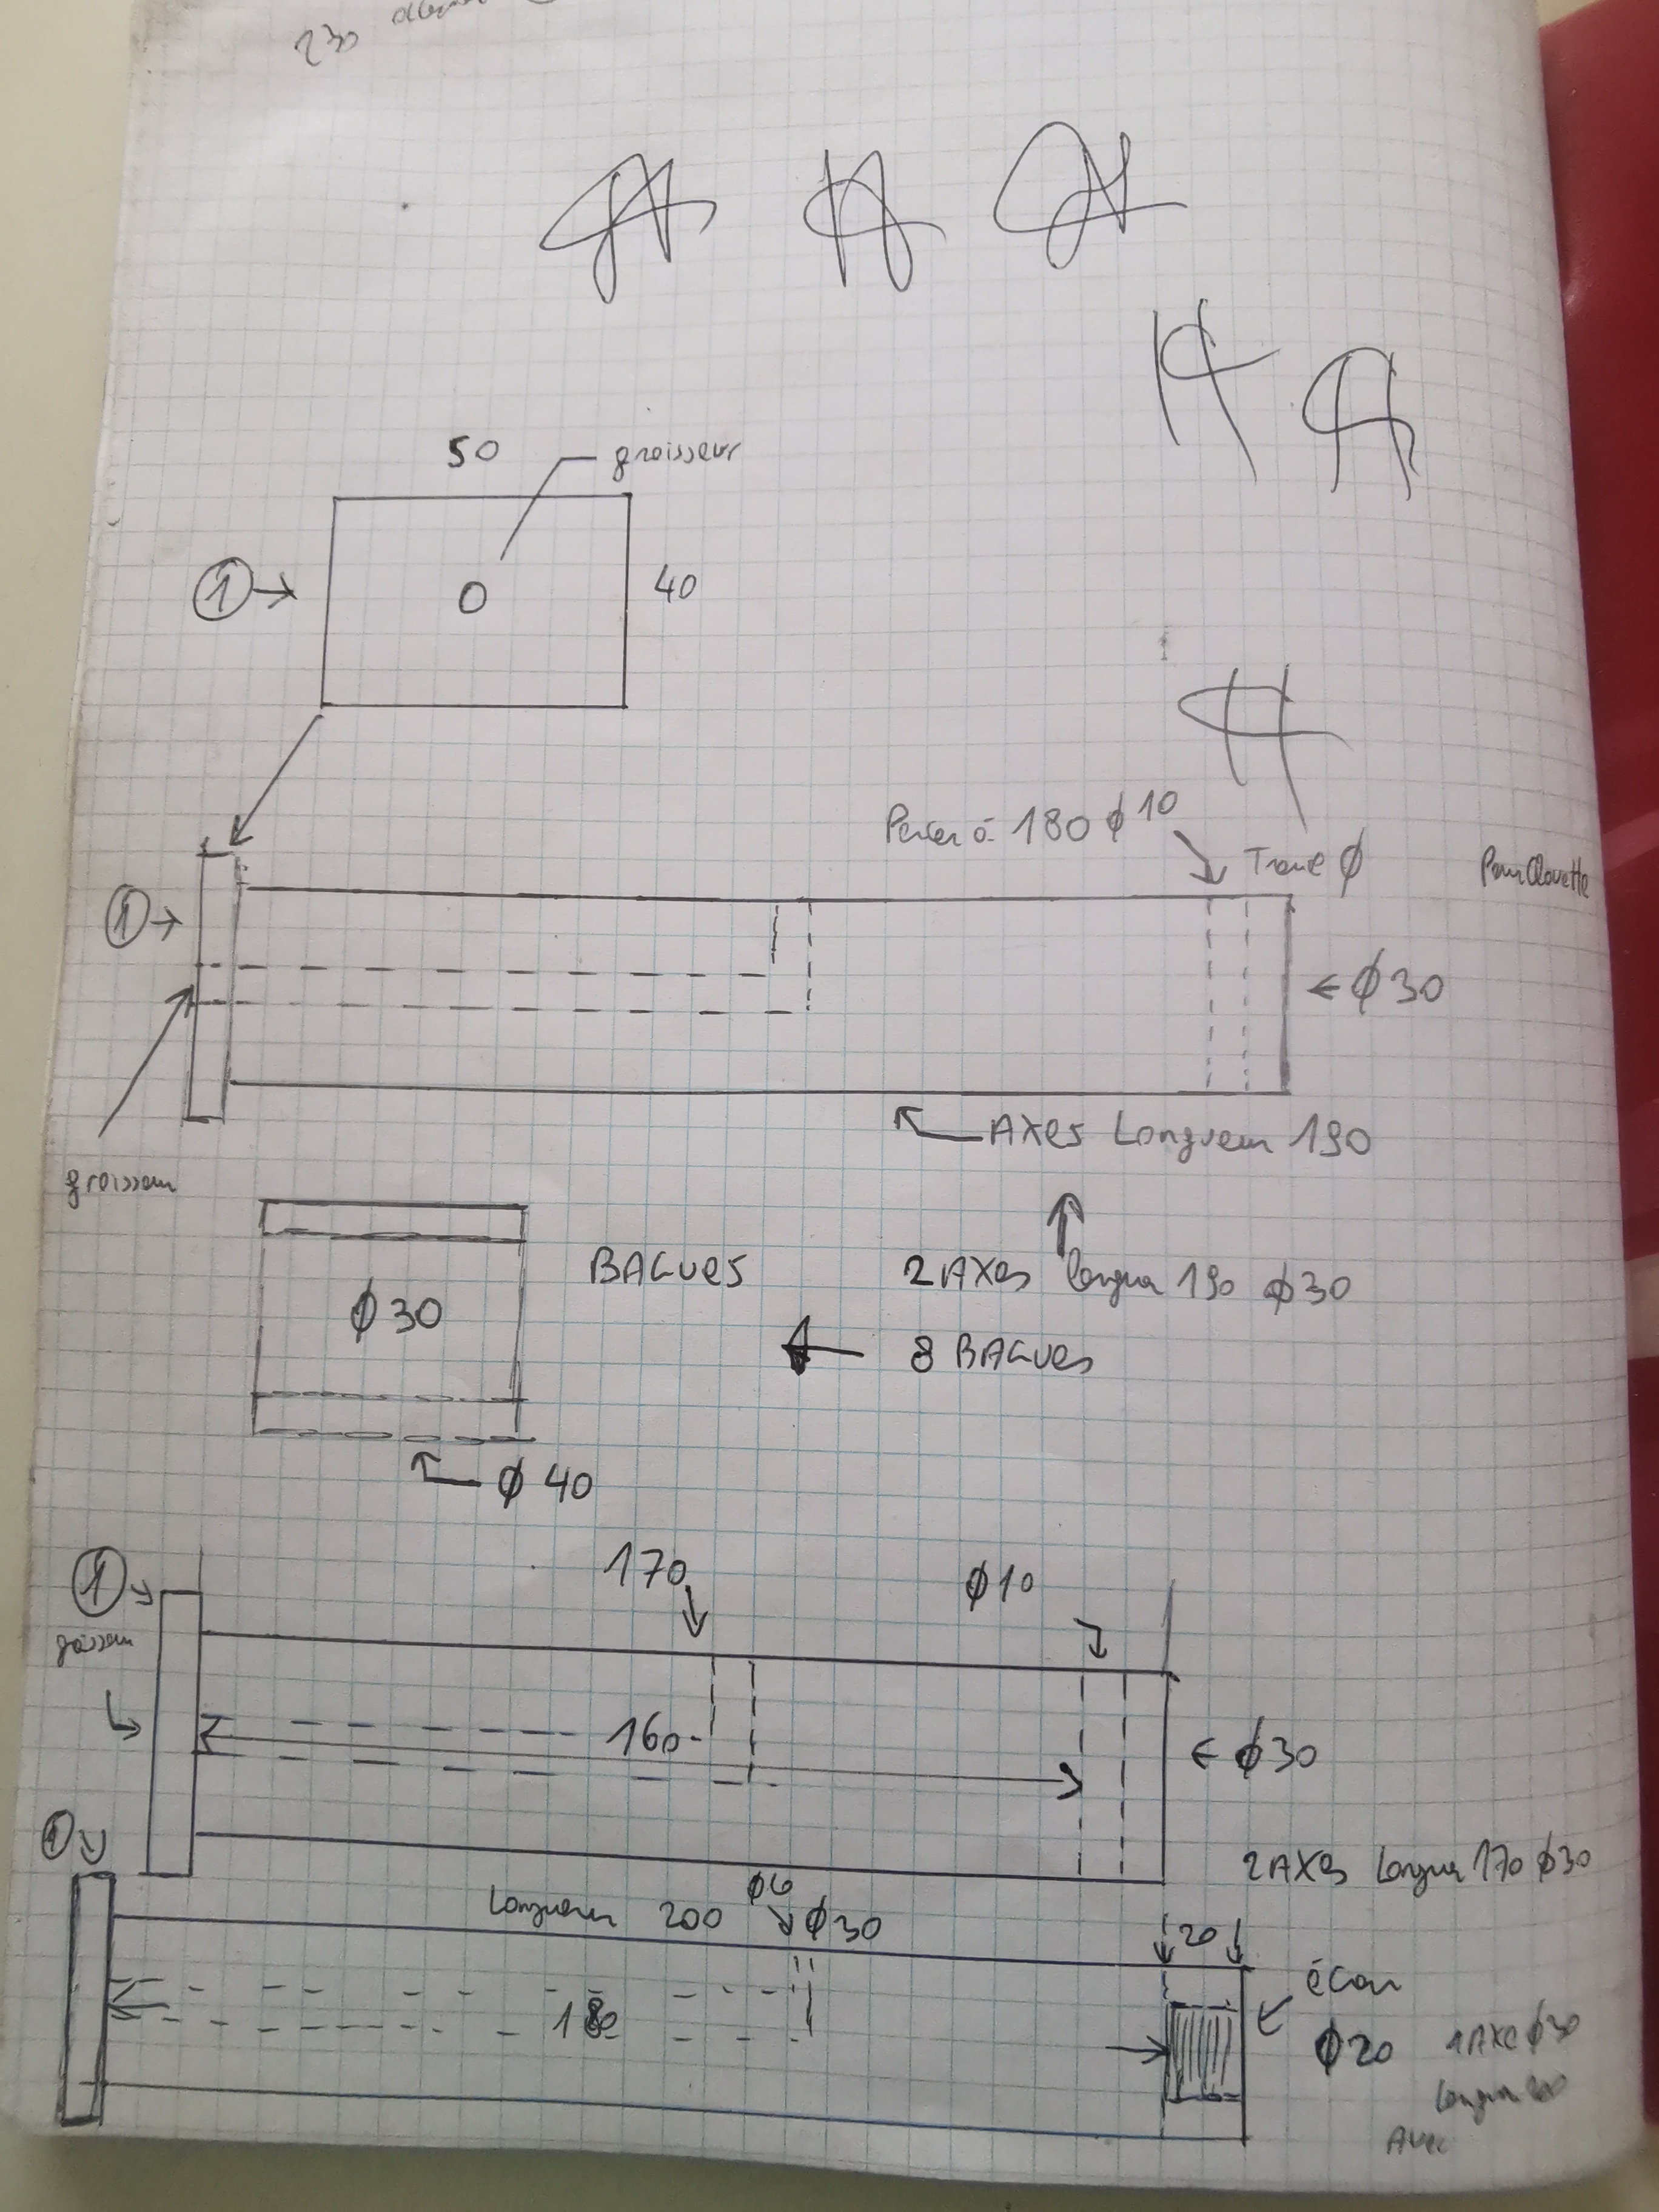 230
50
graisseur
① →
40
Percer à 180 ϕ10
Troue ϕ
Pour Clavette
① →
← ϕ30
Axes Longueur 190
graisseur
BAGUES
2 AXes longueur 190 ϕ30
ϕ30
← 8 BAGUes
ϕ40
①
170
ϕ10
graisseur
160
← ϕ30
①
2 AXes Longueur 170 ϕ30
Longueur 200
ϕ6
ϕ30
20
écrou
180
ϕ20
1 AXe ϕ30
Longueur 200
Avec